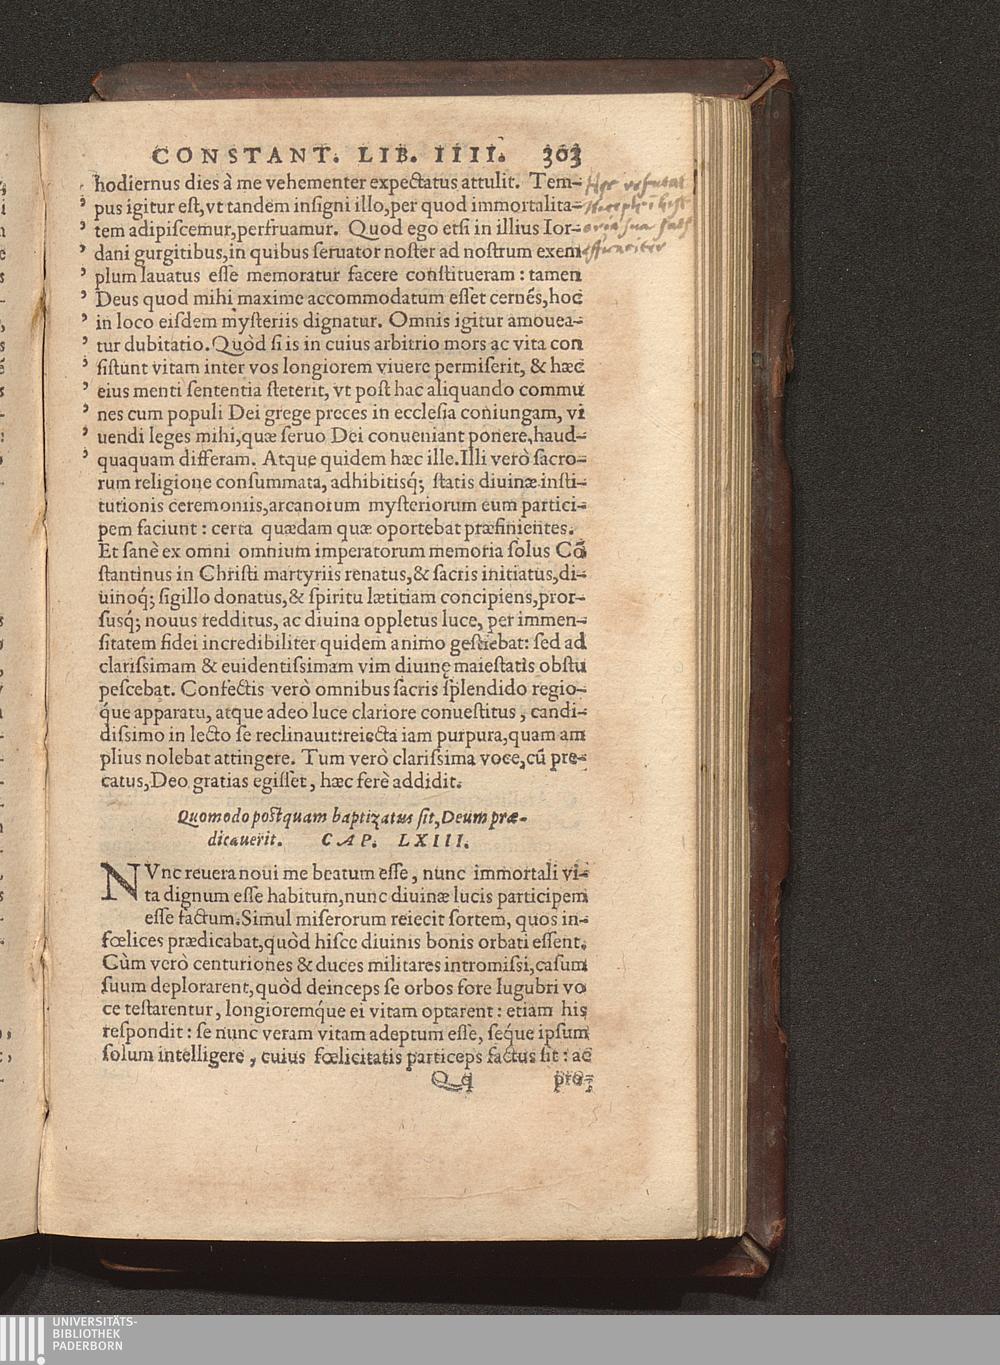 CONSTANT. LIB. IIII. 303
hodiernus dies à me vehementer expectatus attulit. Tem-
pus igitur eſt, vt tandem inſigni illo, per quod immortalita-
tem adipiſcemur, perfruamur. Quod ego etſi in illius Ior-
dani gurgitibus, in quibus ſeruator noſter ad noſtrum exem
plum lauatus eſſe memoratur facere conſtitueram: tamen
Deus quod mihi maxime accommodatum eſſet cernẽs, hoc
in loco eiſdem myſteriis dignatur. Omnis igitur amouea-
tur dubitatio. Quòd ſi is in cuius arbitrio mors ac vita con
ſiſtunt vitam inter vos longiorem viuere permiſerit, & hæc
eius menti ſententia ſteterit, vt poſt hac aliquando commu
nes cum populi Dei grege preces in eccleſia coniungam, vi
uendi leges mihi, quæ ſeruo Dei conueniant ponere, haud-
quaquam differam. Atque quidem hæc ille. Illi verò ſacro-
rum religione conſummata, adhibitisq́; ſtatis diuinæ inſti-
tutionis ceremoniis, arcanorum myſteriorum eum partici-
pem faciunt: certa quædam quæ oportebat præfinientes.
Et ſanè ex omni omnium imperatorum memoria ſolus Cõ
ſtantinus in Chriſti martyriis renatus, & ſacris initiatus, di-
uinoq́; ſigillo donatus, & ſpiritu lætitiam concipiens, pror-
ſusq́; nouus redditus, ac diuina oppletus luce, per immen-
ſitatem fidei incredibiliter quidem animo geſtiebat: ſed ad
clariſsimam & euidentiſsimam vim diuinę maieſtatis obſtu
peſcebat. Confectis verò omnibus ſacris ſplendido regio-
q́ue apparatu, atque adeo luce clariore conueſtitus, candi-
diſsimo in lecto ſe reclinauit: reiecta iam purpura, quam am
plius nolebat attingere. Tum verò clariſsima voce, cũ pre-
catus, Deo gratias egiſſet, hæc ferè addidit.
Quomodo poſtquam baptizatus ſit, Deum præ-
dicauerit. CAP. LXIII.
NVnc reuera noui me beatum eſſe, nunc immortali vi-
ta dignum eſſe habitum, nunc diuinæ lucis participem
eſſe factum. Simul miſerorum reiecit ſortem, quos in-
fœlices prædicabat, quòd hiſce diuinis bonis orbati eſſent.
Cùm verò centuriones & duces militares intromiſsi, caſum
ſuum deplorarent, quòd deinceps ſe orbos fore lugubri vo
ce teſtarentur, longioremq́ue ei vitam optarent: etiam his
reſpondit: ſe nunc veram vitam adeptum eſſe, ſeq́ue ipſum
ſolum intelligere, cuius fœlicitatis particeps factus ſit: ac
Qq pro-
UNIVERSITÄTS-
BIBLIOTHEK
PADERBORN